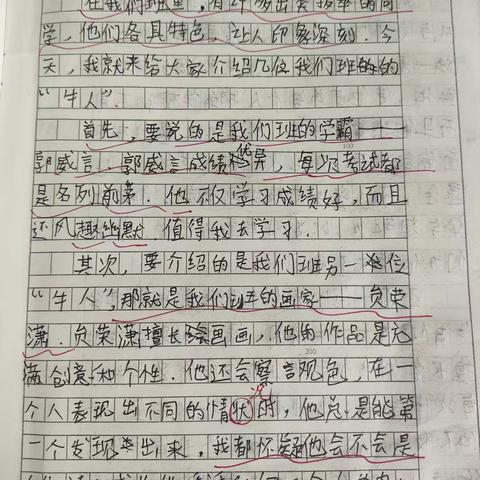 在我们班里，有许多出类拔萃的同
学，他们各具特色，让人印象深刻．今
天，我就来给大家介绍几位我们班的的
“牛人”．
首先，要说的是我们班的学霸——
郭威言．郭威言成绩优异，每次考试都
是名列前茅．他不仅学习成绩好，而且
还风趣幽默．值得我去学习．
其次，要介绍的是我们班另一位
“牛人”，那就是我们班的画家——负荣
潇．负荣潇擅长绘画画，他的作品是充
满创意和个性．他还会察言观色，在一
个人表现出不同的情状时，他总是能第
一个发现出来，我都怀疑他会不会是